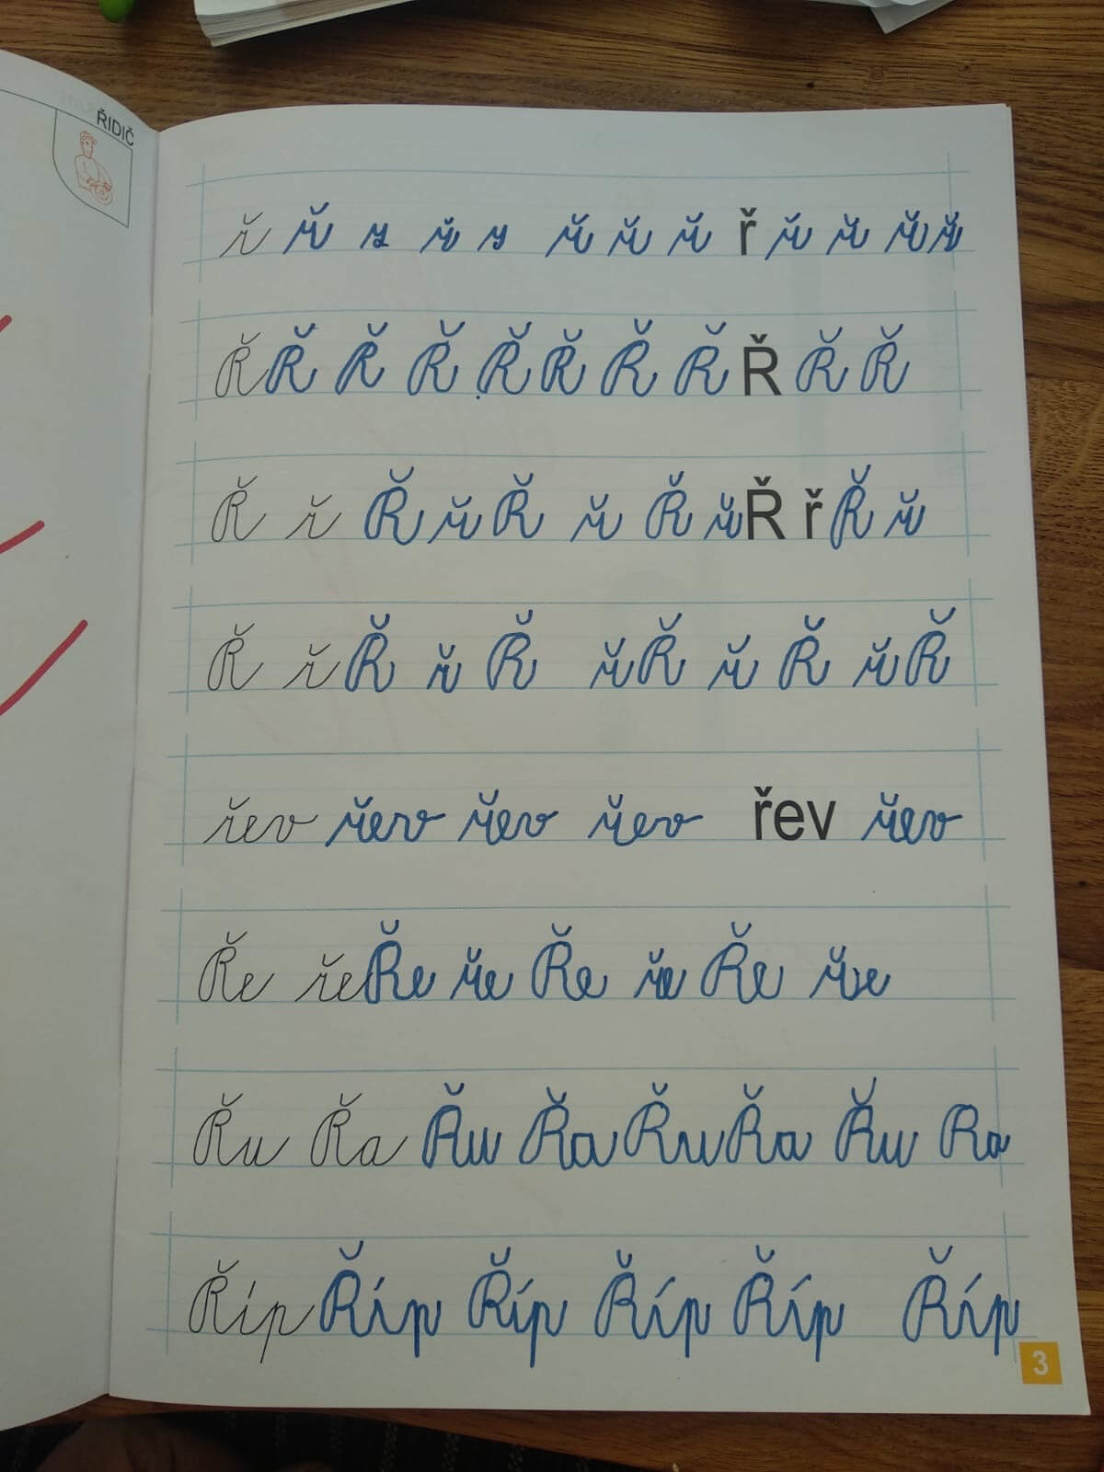 ŘIDIČ
ř ř ř ř ř ř ř ř ř ř ř ř ř
Ř Ř Ř Ř Ř Ř Ř Ř Ř Ř Ř
Ř ř Ř ř Ř ř Ř ř Ř ř Ř ř
Ř ř Ř ř Ř ř Ř ř Ř ř Ř
řev řev řev řev řev řev
Ře ře Ře ře Ře ře Ře ře
Řu Řa Řu Řa Řu Řa Řu Ra
Říp Říp Říp Říp Říp Říp
3